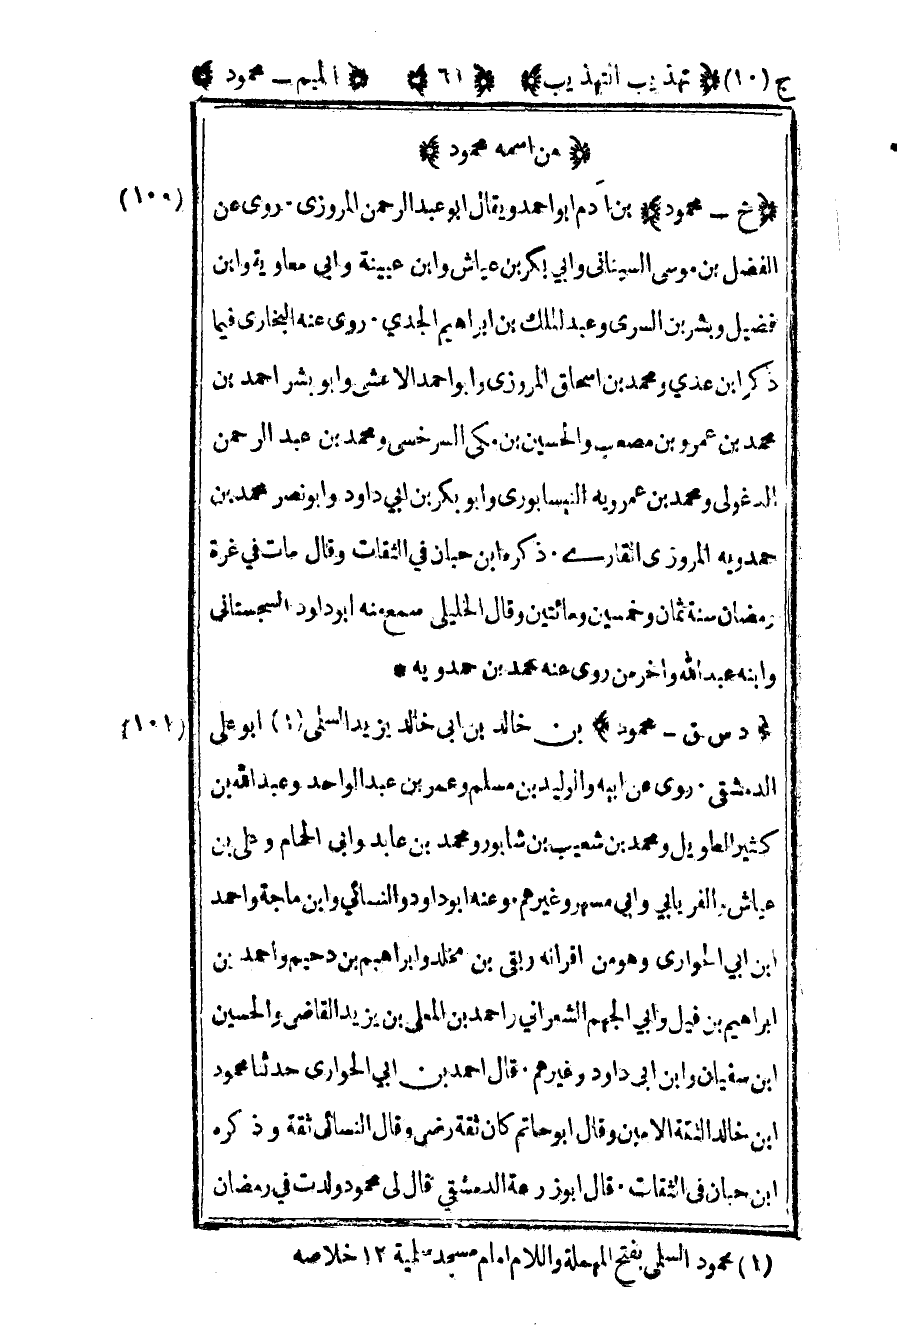 ج (١٠) ﴿ تهذيب التهذيب ﴾ ﴿ ٦١ ﴾ ﴿ الميم ــ محمود ﴾
﴿ من اسمه محمود ﴾
(١٠٠) ﴿ خ ــ محمود ﴾ بن آدم ابو احمد ويقال ابو عبد الرحمن المروزى . روى عن
الفضل بن موسى السينانى وابي بكر بن عياش وابن عيينة وابي معاوية وابن
فضيل وبشر بن السرى وعبد الملك بن ابراهيم الجدي . روى عنه البخارى فيما
ذكر ابن عدي ومحمد بن اسحاق المروزى وابو احمد الاعشى وابو بشر احمد بن
محمد بن عمرو بن مصعب والحسين بن مكى السرخسى ومحمد بن عبد الرحمن
الدغولى ومحمد بن عمرويه النيسابورى وابو بكر بن ابي داود وابو نصر محمد بن
حمدويه المروزى القارے . ذكره ابن حبان في الثقات وقال مات في غرة
رمضان سنة ثمان وخمسين ومائتين وقال الخليلى سمع منه ابو داود السجستانى
وابنه عبد الله وآخر من روى عنه محمد بن حمدويه *
(١٠١) ﴿ د س ق ــ محمود ﴾ بن خالد بن ابى خالد يزيد السلمى (١) ابو على
الدمشقى . روى عن ابيه والوليد بن مسلم وعمر بن عبد الواحد وعبد الله بن
كثير الطويل ومحمد بن شعيب بن شابور ومحمد بن عابد وابي الحمام وعلى بن
عياش والفريابي وابي مسهر وغيرهم . وعنه ابو داود والنسائي وابن ماجة واحمد
ابن ابي الحوارى وهو من اقرانه وبقى بن مخلد وابراهيم بن دحيم واحمد بن
ابراهيم بن فيل وابي الجهم الشعراني واحمد بن المعلى بن يزيد القاضى والحسين
ابن سفيان وابن ابى داود وغيرهم . قال احمد بن ابي الحوارى حدثنا محمود
ابن خالد الثقة الامين وقال ابو حاتم كان ثقة رضى وقال النسائى ثقة وذكره
ابن حبان فى الثقات . قال ابو زرعة الدمشقي قال لى محمود ولدت في رمضان
(١) محمود السلمى بفتح المهملة واللام امام مسجد سلمية ١٢ خلاصه